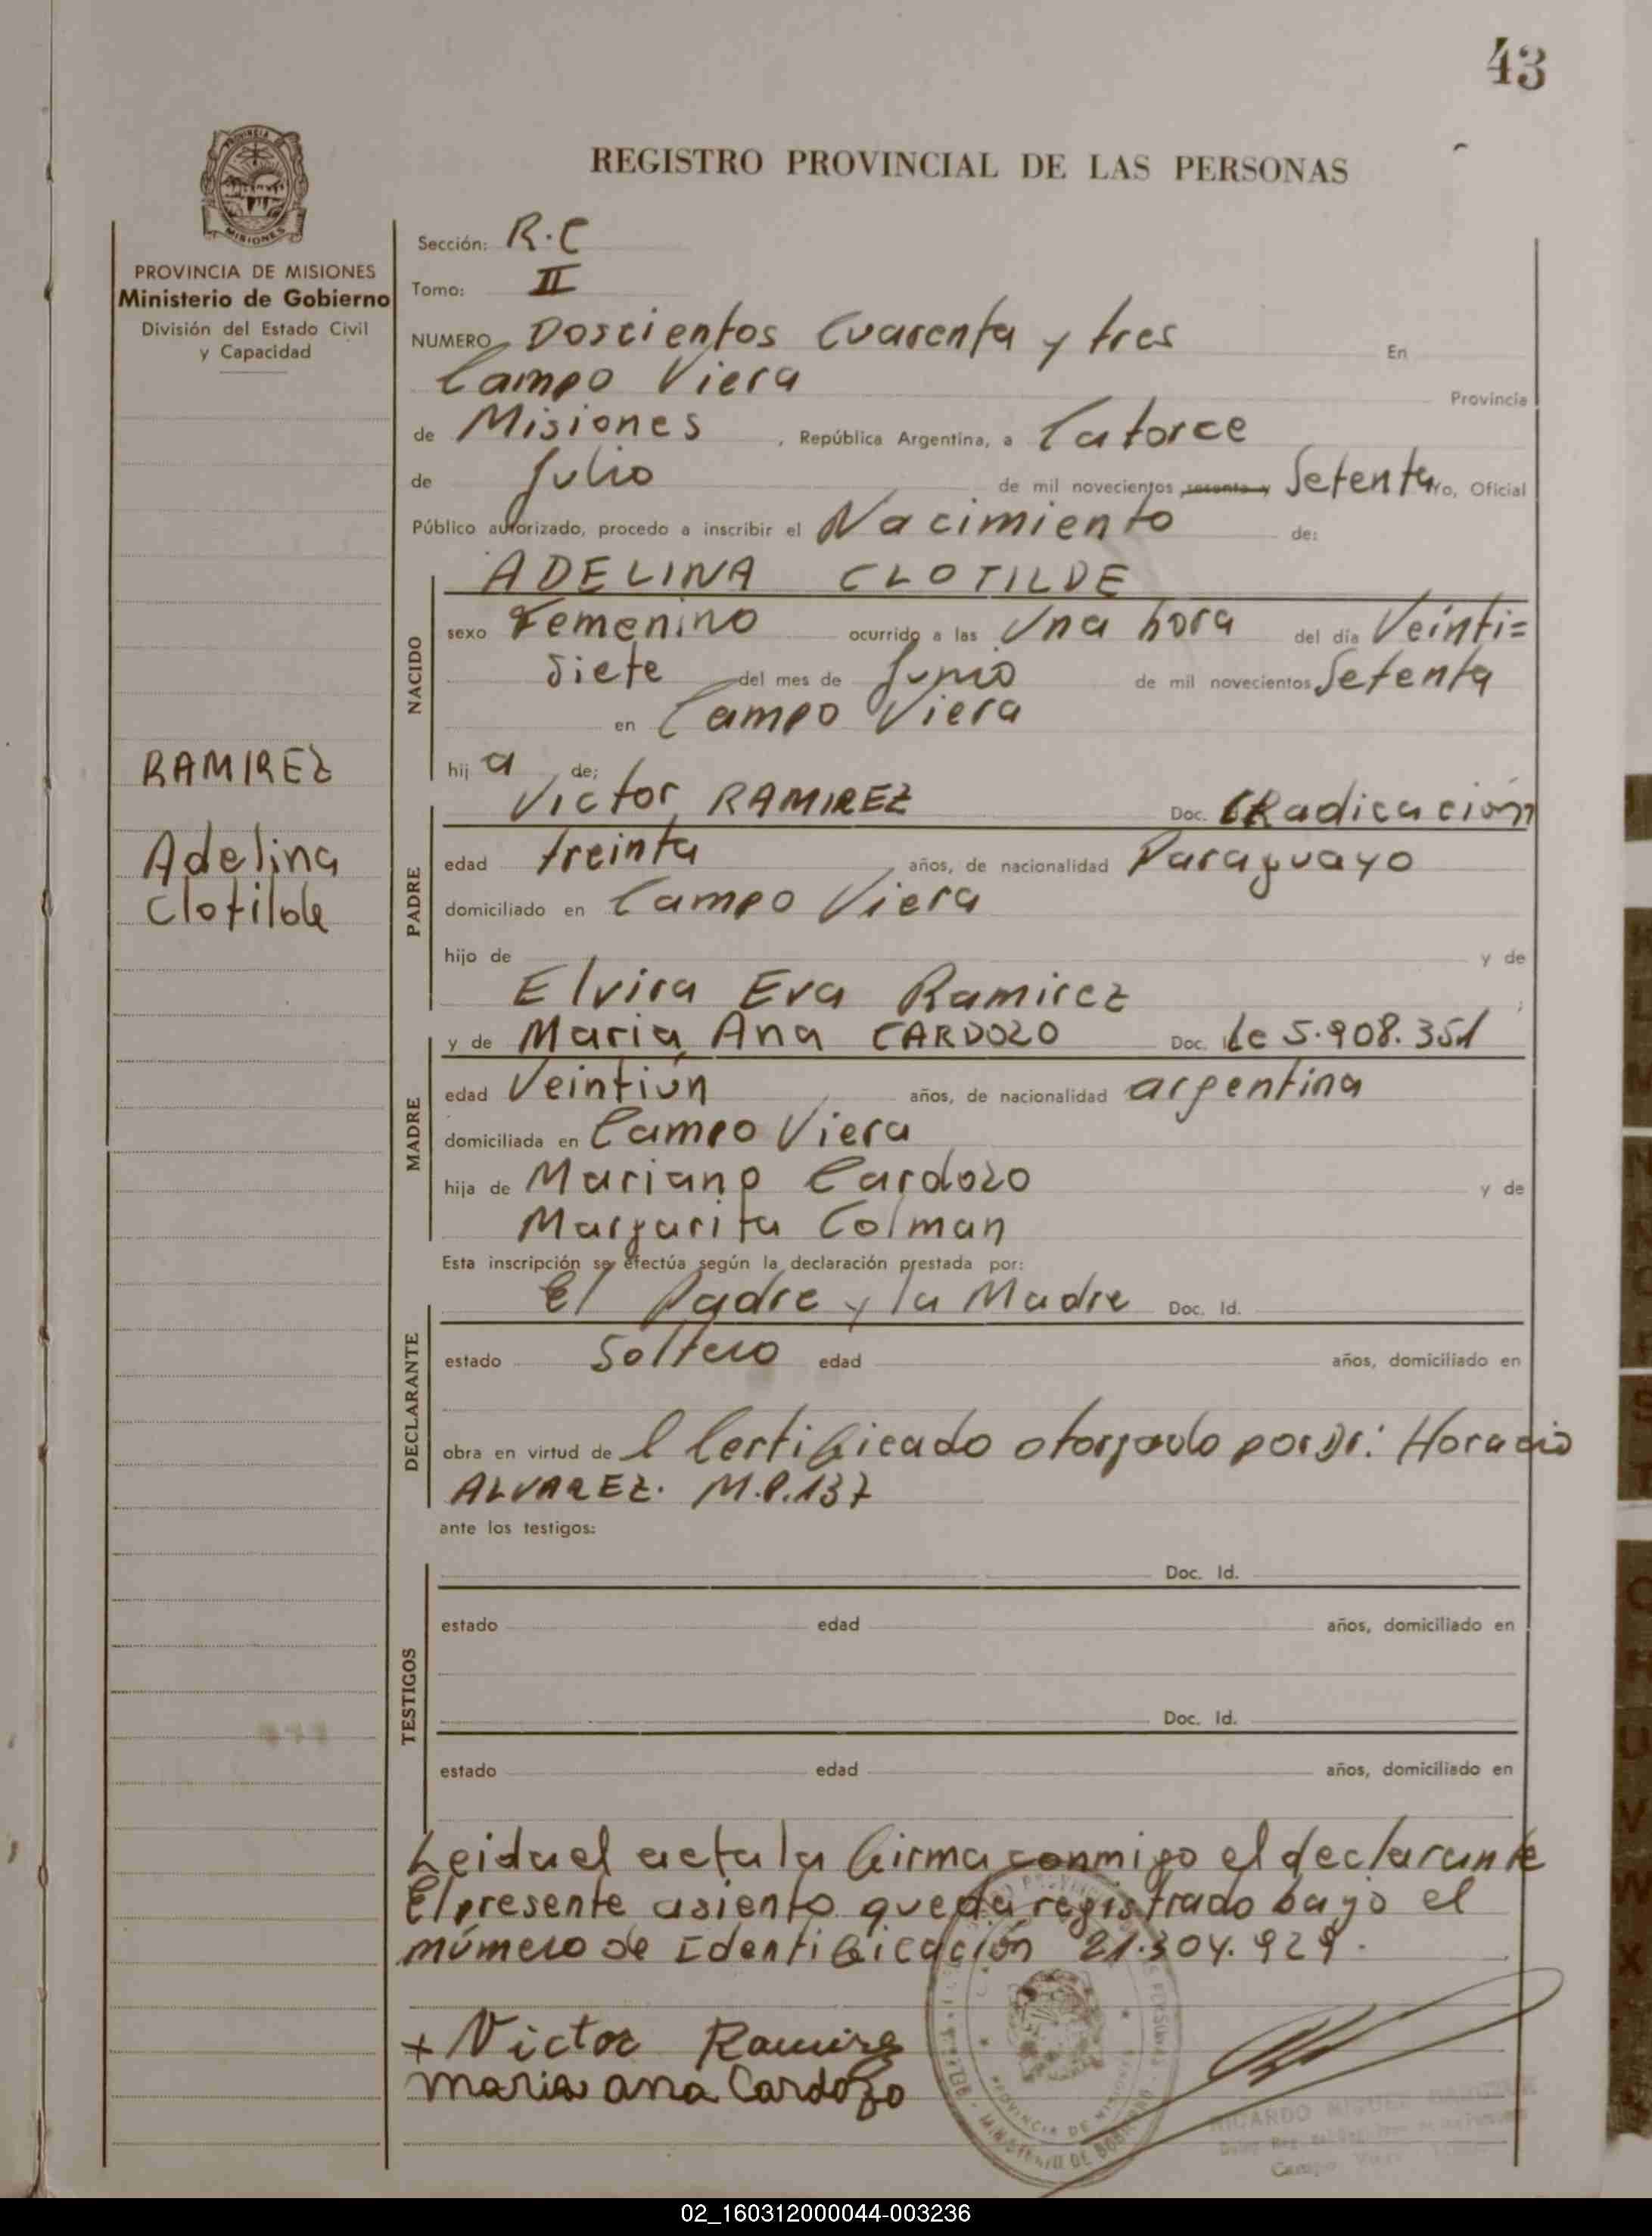 43
REGISTRO PROVINCIAL DE LAS PERSONAS
PROVINCIA DE
MISIONES
PROVINCIA DE MISIONES
Ministerio de Gobierno
División del Estado Civil
y Capacidad
RAMIREZ
Adelina
Clotilde
Sección: R.C
Tomo: II
NUMERO Doscientos Cuarenta y tres En
Campo Viera Provincia
de Misiones , República Argentina, a Catorce
de Julio de mil novecientos sesenta y Setenta Yo, Oficial
Público autorizado, procedo a inscribir el Nacimiento de:
NACIDO
ADELINA CLOTILDE
sexo Femenino ocurrido a las Una hora del día Veinti=
siete del mes de Junio de mil novecientos Setenta
en Campo Viera
hij a de;
PADRE
Victor RAMIREZ Doc. Radicación
edad treinta años, de nacionalidad Paraguayo
domiciliado en Campo Viera
hijo de y de
Elvira Eva Ramirez
MADRE
y de Maria Ana CARDOZO Doc. Lc 5.908.351
edad Veintiún años, de nacionalidad argentina
domiciliada en Campo Viera
hija de Mariano Cardozo y de
Margarita Colman
Esta inscripción se efectúa según la declaración prestada por:
DECLARANTE
El Padre y la Madre Doc. Id.
estado Soltero edad años, domiciliado en
obra en virtud de l Certificado otorgado por Dr: Horacio
ALVAREZ. M.P.137
ante los testigos:
TESTIGOS
Doc. Id.
estado edad años, domiciliado en
Doc. Id.
estado edad años, domiciliado en
Leida el acta la firma conmigo el declarante
El presente asiento queda registrado bajo el
número de Identificación 21.304.929.
+ Victor Ramirez
maria ana Cardozo
PROVINCIA DE MISIONES
MINISTERIO DE GOBIERNO
RICARDO MIGUEL
Campo Viera
02_160312000044-003236